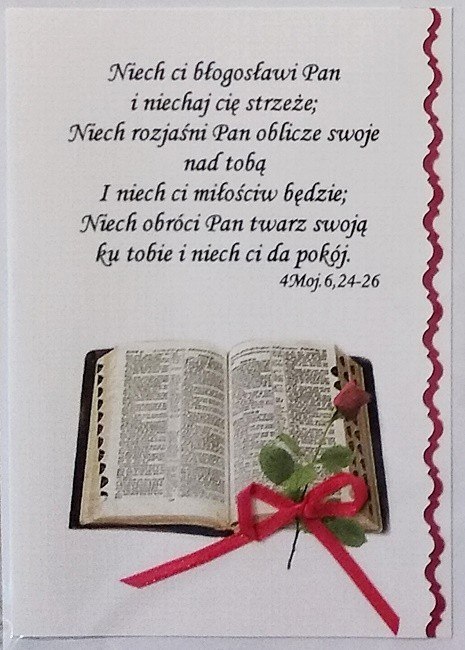 Niech ci błogosławi Pan
i niechaj cię strzeże;
Niech rozjaśni Pan oblicze swoje
nad tobą
I niech ci miłościw będzie;
Niech obróci Pan twarz swoją
ku tobie i niech ci da pokój.
4Moj.6,24-26